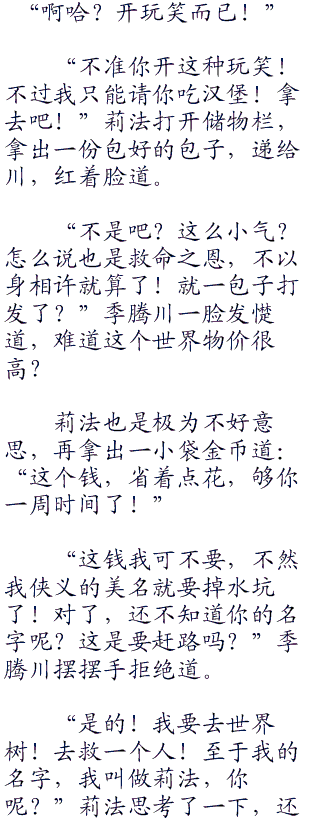 “啊哈？开玩笑而已！”
“不准你开这种玩笑！
不过我只能请你吃汉堡！拿
去吧！”莉法打开储物栏，
拿出一份包好的包子，递给
川，红着脸道。
“不是吧？这么小气？
怎么说也是救命之恩，不以
身相许就算了！就一包子打
发了？”季腾川一脸发憷
道，难道这个世界物价很
高？
莉法也是极为不好意
思，再拿出一小袋金币道：
“这个钱，省着点花，够你
一周时间了！”
“这钱我可不要，不然
我侠义的美名就要掉水坑
了！对了，还不知道你的名
字呢？这是要赶路吗？”季
腾川摆摆手拒绝道。
“是的！我要去世界
树！去救一个人！至于我的
名字，我叫做莉法，你
呢？”莉法思考了一下，还